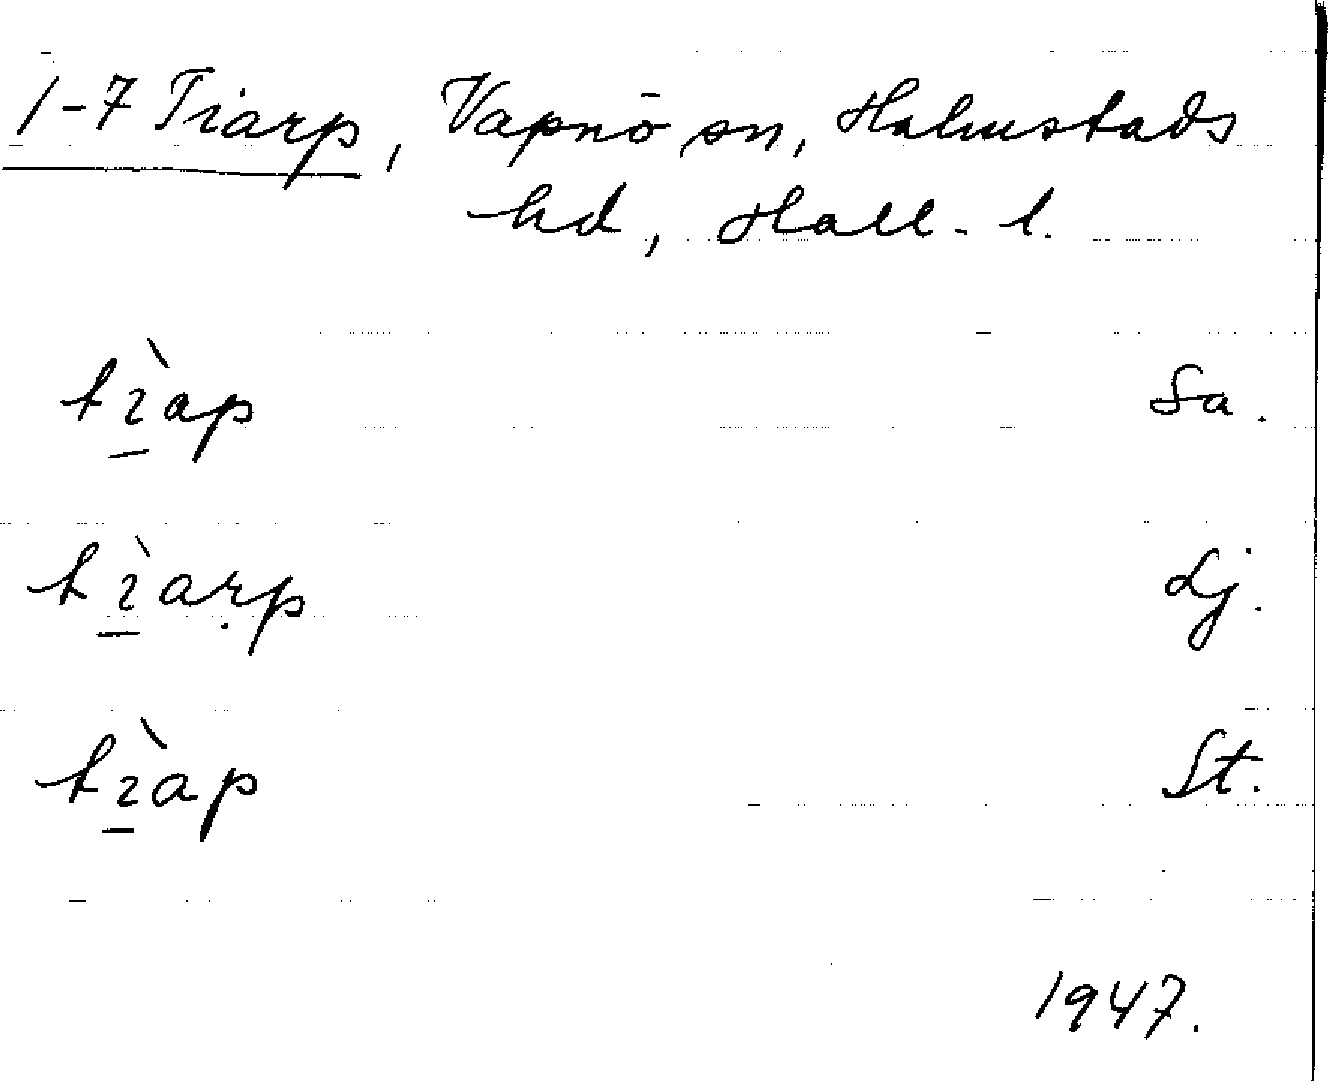 1-7 Tiarp, Vapnö sn, Halmstads
hd, Hall. l.
tı�plainap Sa.
Lj.
St.
1947.